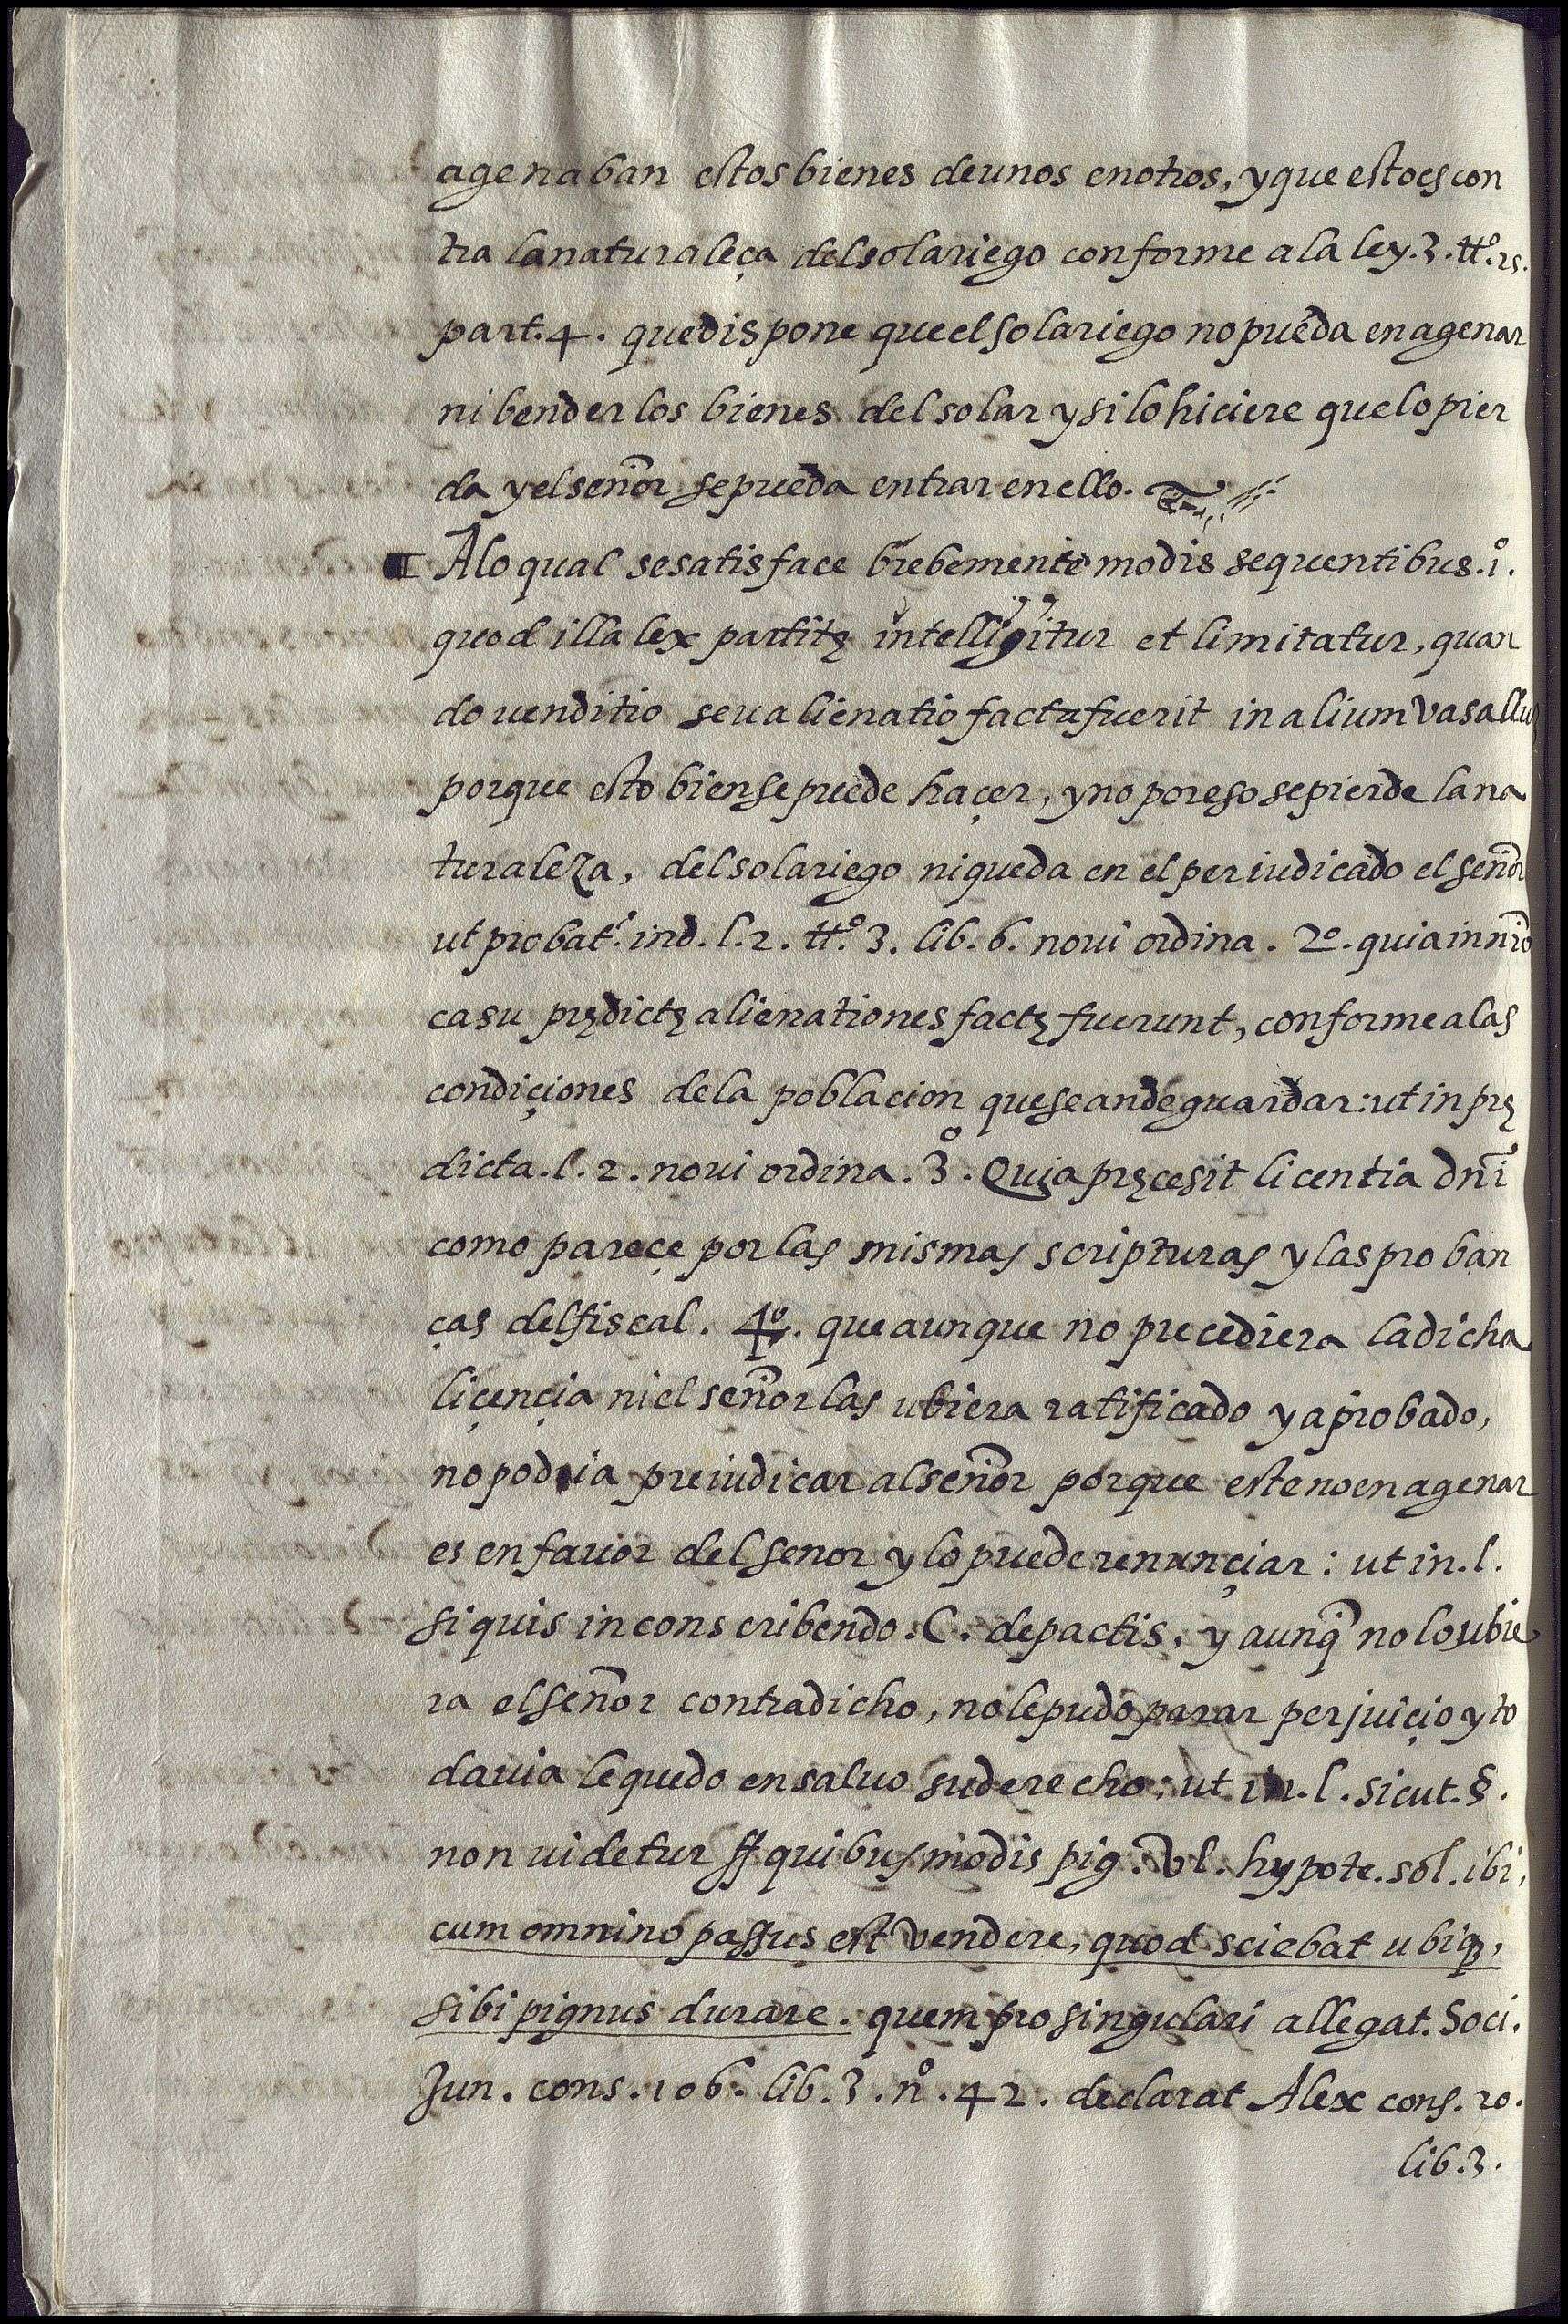 agenaban estos bienes de unos en otros, y que esto es con
tra la naturaleça del solariego conforme a la ley. 3. ttº. 25.
part. 4. que dispone que el solariego no pueda enagenar
ni bender los bienes del solar y si lo hiciere que lo pier
da y el señor se pueda entrar en ello.
A lo qual se satisface brebemente modis sequentibus. 1º.
quod illa lex partitę intelligitur et limitatur, quan
do uenditio seu alienatio facta fuerit in alium vasallũ
porque esto bien se puede haçer, y no por eso se pierde la na
turaleza, del solariego ni queda en el periudicado el señor
ut probatr. in d. l. 2. ttº. 3. lib. 6. noui ordina. 2º. quia in nr̃o
casu prędictę alienationes factę fuerunt, conforme a las
condiçiones de la poblacion que se an de guardar: ut in prę
dicta. l. 2. noui ordina. 3º. Quia pręcesit licentia dñi
como pareçe por las mismas scripturas y las proban
ças del fiscal. 4º. que aunque no precediera la dicha
liçençia ni el señor las ubiera ratificado y aprobado,
no podria preiudicar al señor porque este no enagenar
es en fauor del senor y lo puede renunçiar: ut in. l.
si quis in conscribendo. C. de pactis, y aunq̃ no lo ubie
ra el señor contradicho, no le pudo parar perjuiçio y to
dauia le quedo en saluo su derecho: ut in. l. sicut. §.
non uidetur ff quibus modis pig. vl. hypote. sol. ibi,
cum omnino passus est vendere, quod sciebat ubiq,
sibi pignus durare. quem pro singulari allegat. Soci.
Jun. cons. 106. lib. 3. nº. 42. declarat Alex cons. 20.
lib. 3.